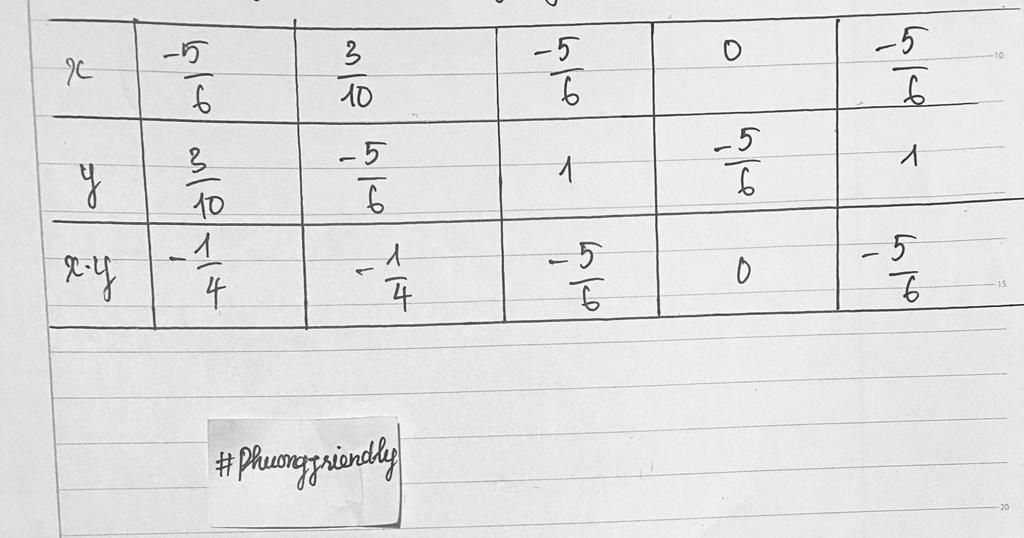 x -5/6 3/10 -5/6 0 -5/6
y 3/10 -5/6 1 -5/6 1
x.y -1/4 -1/4 -5/6 0 -5/6
#Phuongfriendly
10
15
20